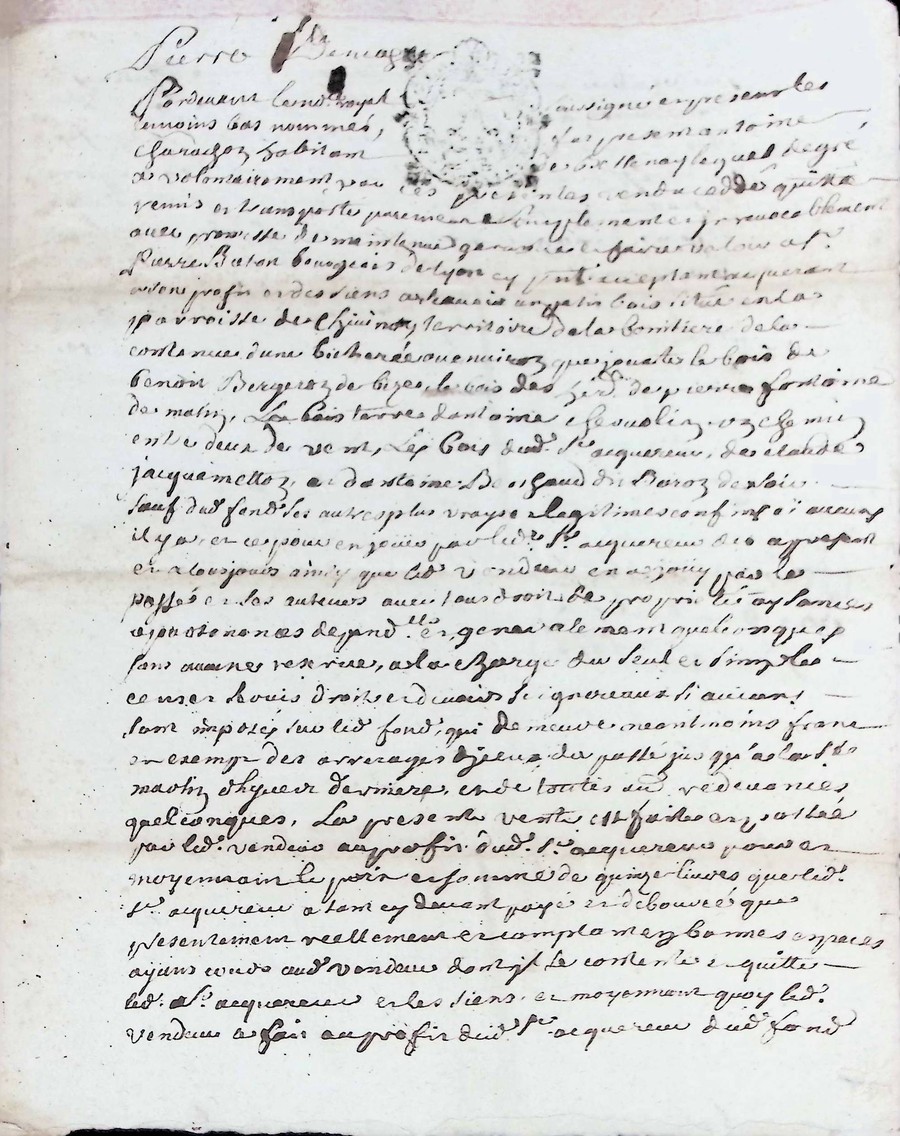 Pierre
Pardevant le nore. royal soussigné en presence des
temoins bas nommés, fut present antoine
habitant de lequel de gré
et volontairement par ces presentes a vendu ceddé quitté
remis et transporté purement simplement et irrevocablement
avec promesse de maintenue garantie et faire valoir a sr.
Pierre Buton bourgeois de Lyon cy pnt. acceptant acquerant
a son profit et des siens a scavoir un petit bois situé en la
parroisse de territoire de la de la
contenue d'une bicherée ou environ que jouxte le bois de
benoit Bergeron de bize, le bois des hers. de pierre fontaine
de matin, Les bois terre d'antoine un chemin
entre deux de vent, Les bois dud. sr. acquereur, de claude
jacquemetton, et d'antoine du de soir
sauf dud. fond ses autres plus vrays et legitimes confins si aucuns
il y a, et ce pour en jouir par led. sr. acquereur des a present
et a tousjours ainsy que led. vendeur en a jouy par le
passé et ses auteurs avec tous droits de proprieté aysances
apartenances depend. et generalement quelconques
sans aucune reserve, a la charge du seul et simple
cens et servis droits et devoirs seigneuriaux si aucuns
sont imposés sur led. fond, qui demeure neantmoins franc
et exempt des arrerages d'jceux du passé jusqu'a la st.
martin d'hyver derniere, et de toutes au. redevances
quelconques, La presente vente est faite et passée
par led. vendeur au profit dud. sr. acquereur pour et
moyennant le prix et somme de quinze livres que led.
sr. acquereur a tant cy devant payé et déboursé que
presentement reellement et comptant en bonnes especes
ayant cours aud. vendeur dont jl se contente et quitte
led. sr. acquereur et les siens, et moyennant quoy led.
vendeur a fait au profit dud. sr. acquereur dud. fond